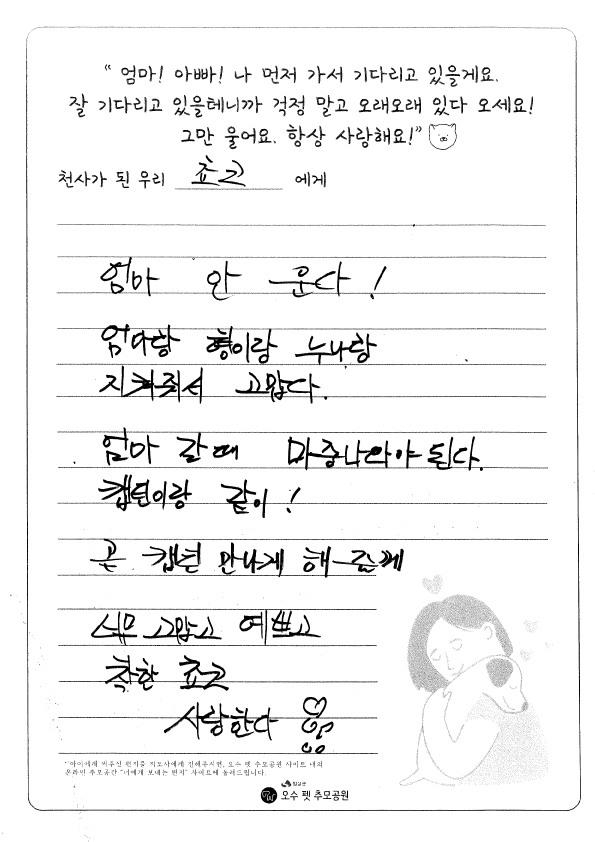 “ 엄마! 아빠! 나 먼저 가서 기다리고 있을게요.
잘 기다리고 있을테니까 걱정 말고 오래오래 있다 오세요!
그만 울어요. 항상 사랑해요!”
천사가 된 우리 쵸코 에게
엄마 안 운다!
엄마랑 형이랑 누나랑
지켜줘서 고맙다.
엄마 갈때 마중나와야 된다.
캡틴이랑 같이!
곧 캡틴 만나게 해줄께
너무 고맙고 예쁘고
착한 쵸코
사랑한다
"아이에게 써주신 편지를 지도사에게 전해주시면, 오수 펫 추모공원 사이트 내의
온라인 추모공간 "너에게 보내는 편지" 사이트에 올려드립니다.
임실군
오수 펫 추모공원